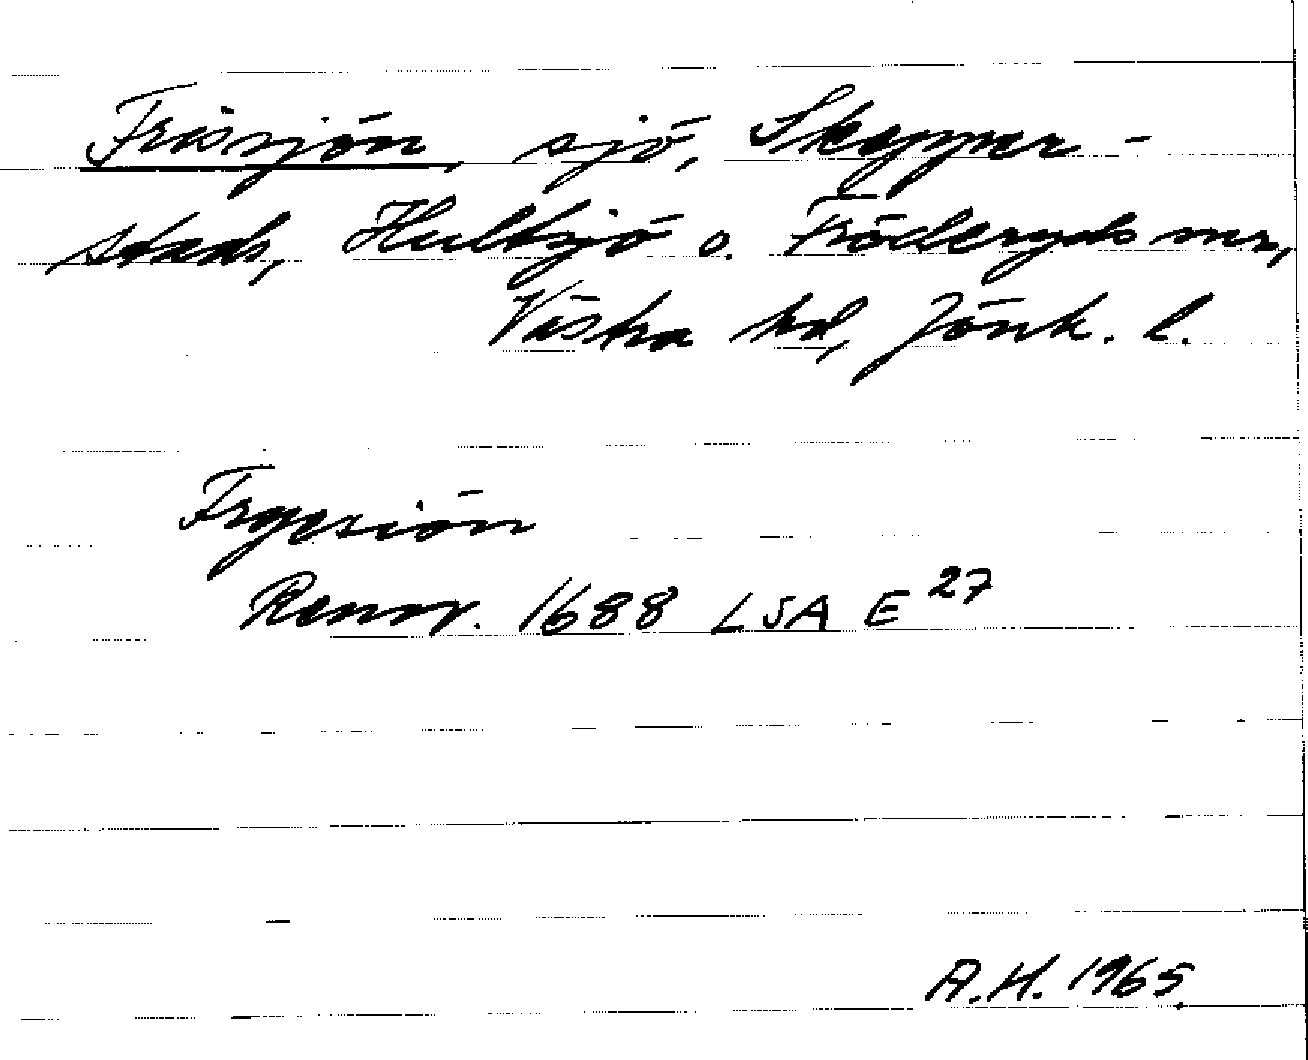 Frisjön, sjö, Skeppers-
stads, Hultsjö o. Fröderyds snr,
Västra hd, Jönk. l.
Frgesiön
Renov. 1688 LSA E 27
A.H. 1965